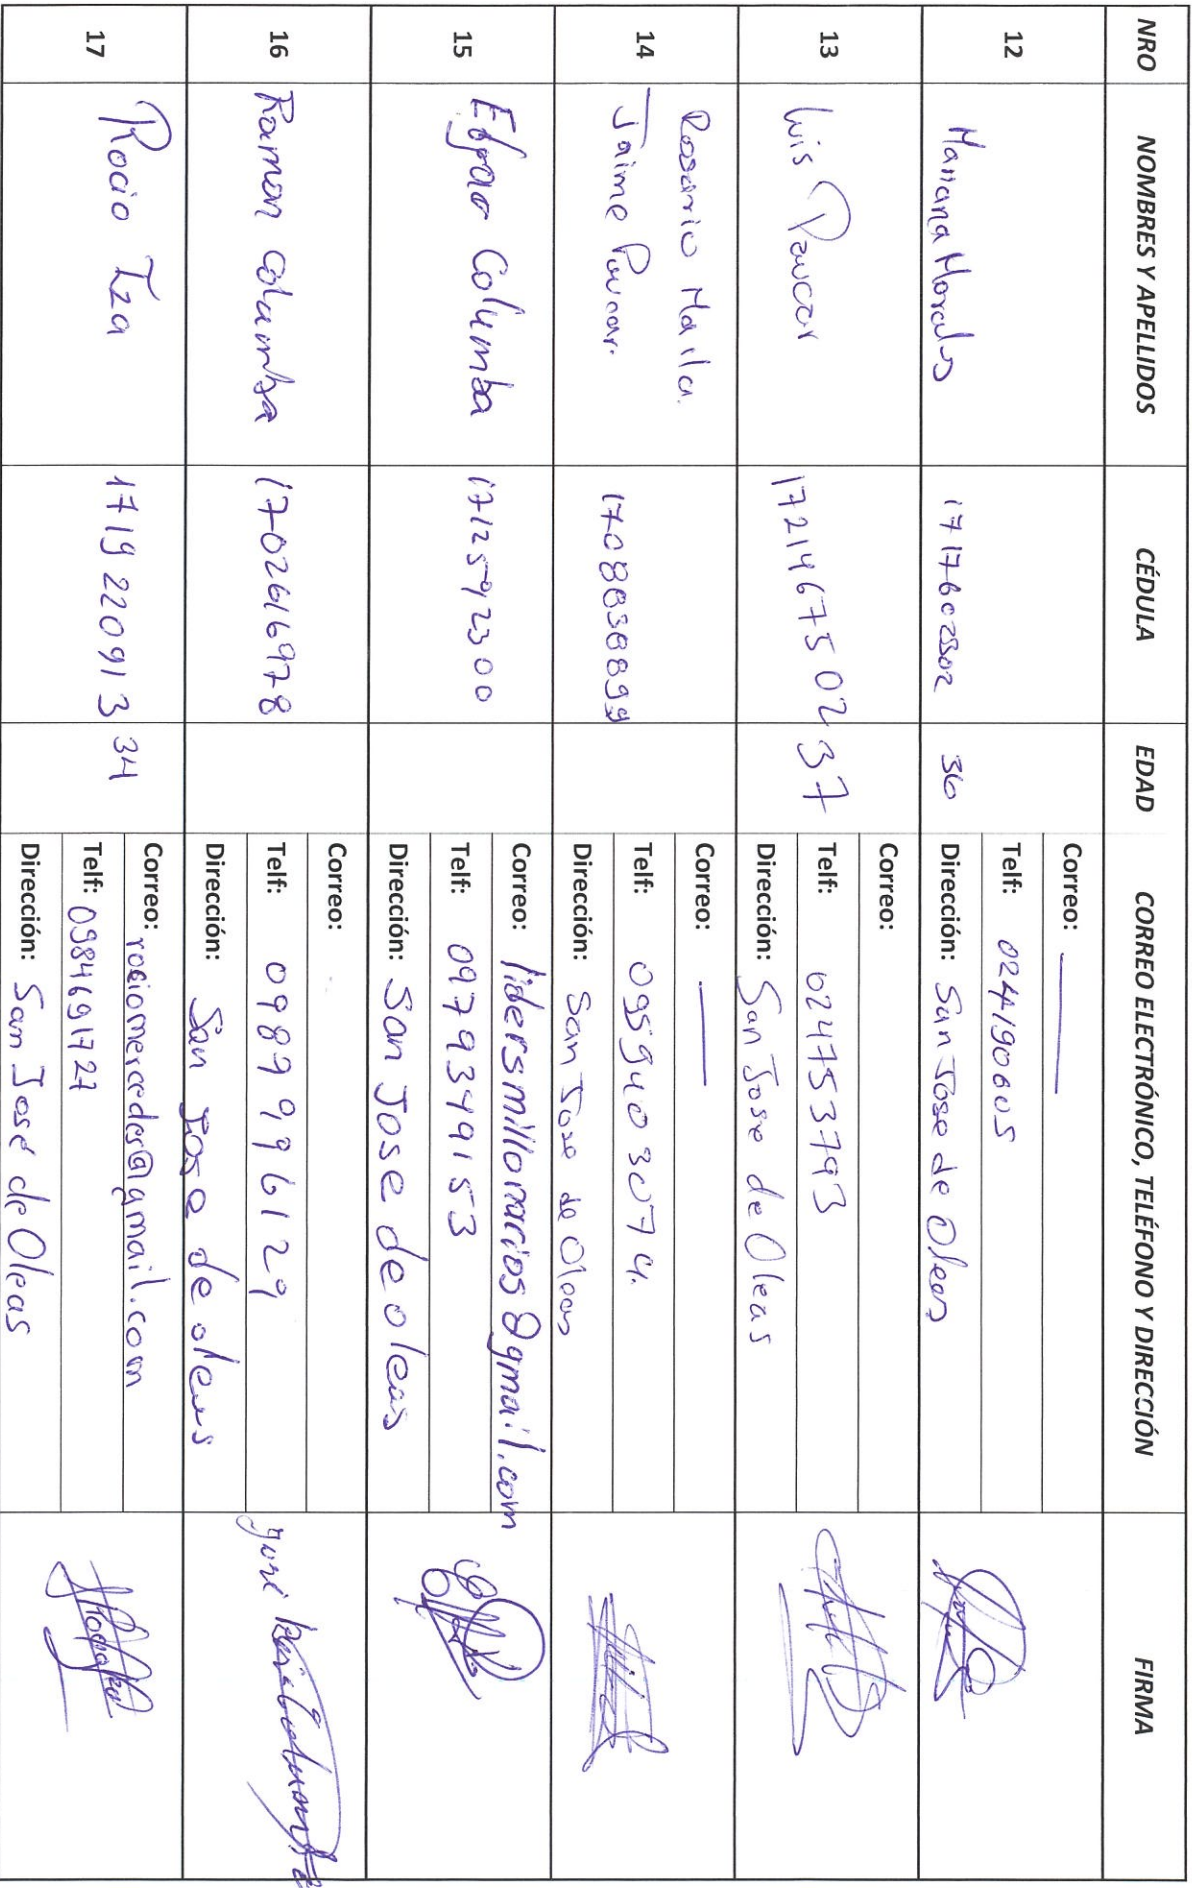 NRO NOMBRES Y APELLIDOS CÉDULA EDAD CORREO ELECTRÓNICO, TELÉFONO Y DIRECCIÓN FIRMA
12 Mariana Morales 1717602302 36
Correo: ——
Telf: 024190605
Dirección: San Jose de Oleas
13 Luis Paucar 1721467502 37
Correo:
Telf: 024753793
Dirección: San Jose de Oleas
14 Rosario Maila.
Jaime Paucar. 1708838899
Correo: ——
Telf: 0959403074.
Dirección: San Jose de Oleas
15 Efrain Columba 1712592300
Correo: lidersmillonarios@gmail.com
Telf: 0979349153
Dirección: San Jose de oleas
16 Ramon Columba 1702616978
Correo:
Telf: 0989996129
Dirección: San Jose de oleas
José Columba
17 Rocio Iza 1719220913 34
Correo: rociomercedes@gmail.com
Telf: 0984691727
Dirección: San José de Oleas